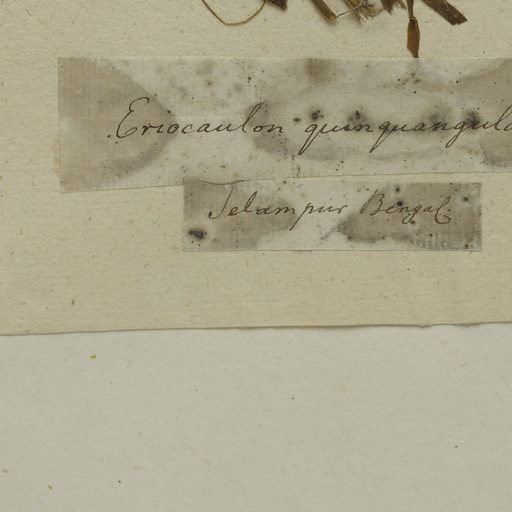 Eriocaulon quinquangula
Jelampur Bengal.